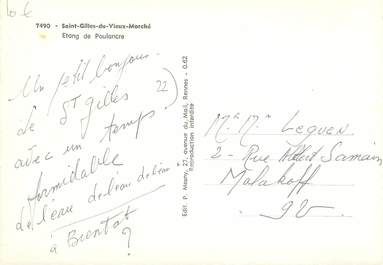 10 €
7490 - Saint-Gilles-du-Vieux-Marché
Etang de Poulancre
Un petit bonjour
de St gilles 22)
avec un temps
formidable
de l'eau de l'eau de l'eau
à Bientot
?
Edit. P. Mesny, 27, avenue du Mail, Rennes - 0.62
Reproduction interdite
Mr Mm Lequen
2 - Rue Albert Samain
Malakoff
92